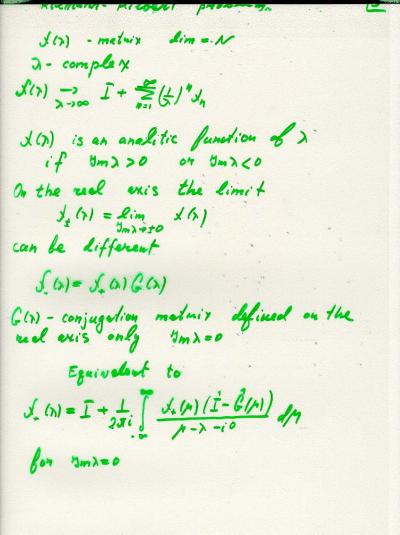 Riemann-Hilbert problem.
χ(λ) - matrix dim = N
λ - complex
χ(λ) → I + Σ (1/λ)ⁿ χₙ
λ→∞ n=1 ∞
χ(λ) is an analitic function of λ
if Imλ>0 or Imλ<0
On the real axis the limit
χ±(λ) = lim χ(λ)
Imλ→±0
can be different
χ₋(λ) = χ₊(λ) G(λ)
G(λ) - conjugation matrix defined on the
real axis only Imλ=0
Equivalent to
χ₋(λ) = I + 1/2πi ∫ χ₊(μ) (I - G(μ)) / μ - λ - i0 dμ
for Imλ=0